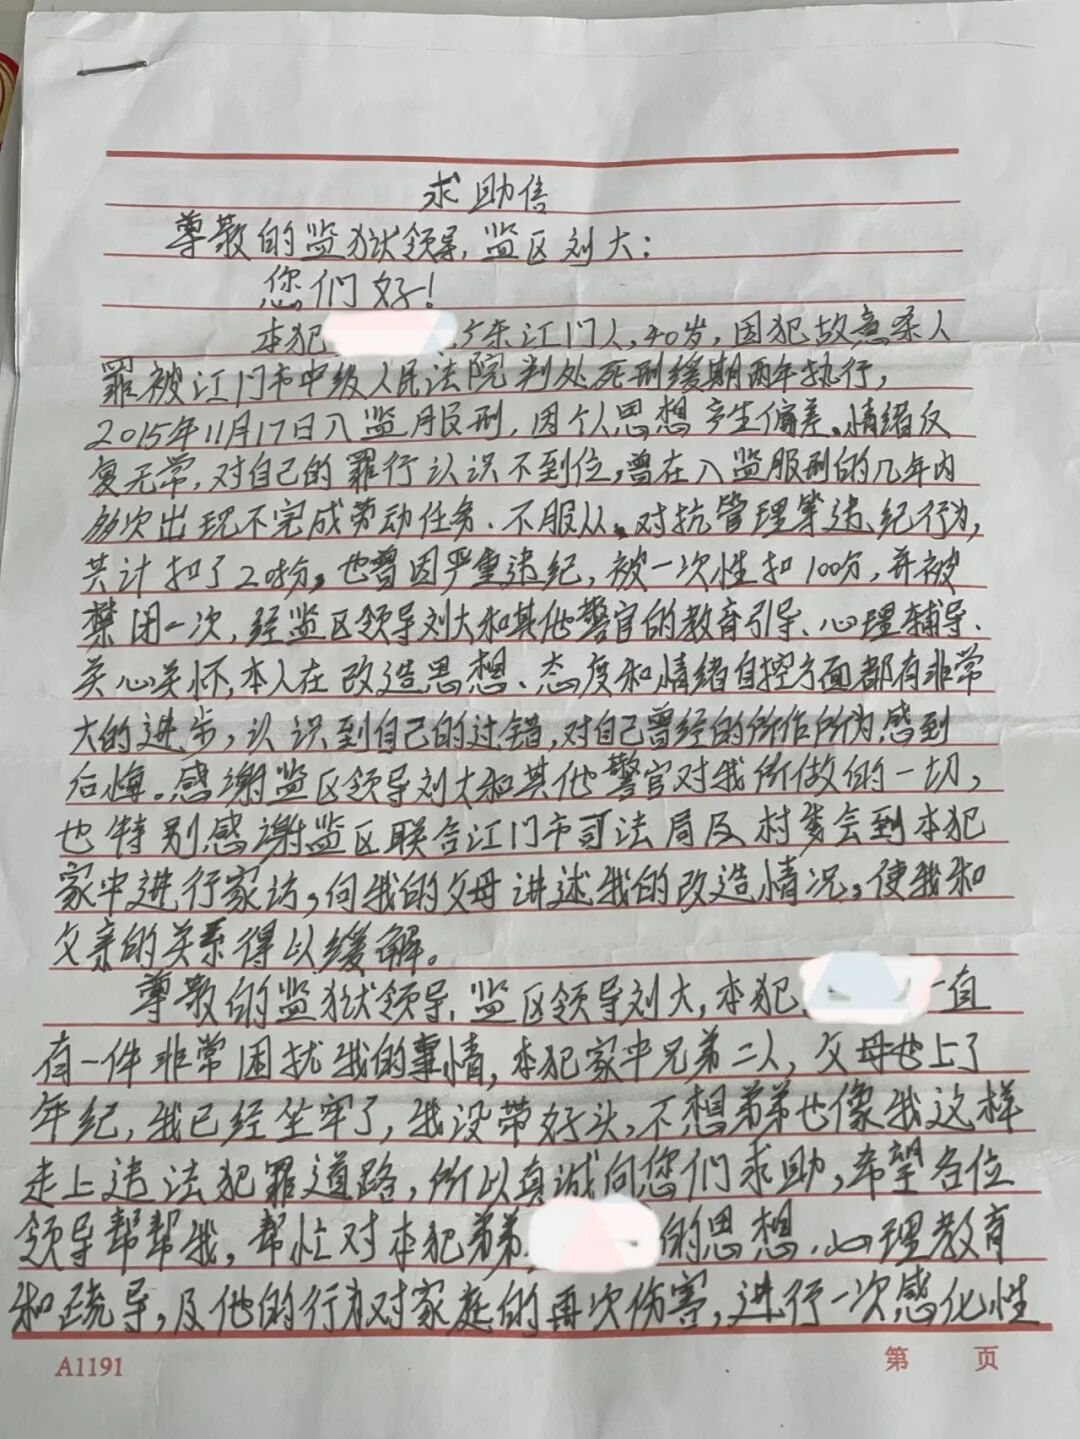 求助信
尊敬的监狱领导,监区刘大:
您们好!
本犯 东江门人,40岁,因犯故意杀人
罪被江门市中级人民法院判处死刑缓期两年执行,
2015年11月17日入监服刑,因个人思想产生偏差、情绪反
复无常,对自己的罪行认识不到位,曾在入监服刑的几年内
多次出现不完成劳动任务、不服从、对抗管理等违纪行为,
共计扣了 ,也曾因严重违纪,被一次性扣100分,并被
禁闭一次,经监区领导刘大和其他警官的教育引导、心理辅导、
关心关怀,本人在改造思想、态度和情绪自控方面都有非常
大的进步,认识到自己的过错,对自己曾经的所作所为感到
后悔。感谢监区领导刘大和其他警官对我所做的一切,
也特别感谢监区联合江门市司法局及村委会到本犯
家中进行家访,向我的父母讲述我的改造情况,使我和
父亲的关系得以缓解。
尊敬的监狱领导,监区领导刘大,本犯 一直
有一件非常困扰我的事情,本犯家中兄弟二人,父母也上了
年纪,我已经坐牢了,我没带好头,不想弟弟也像我这样
走上违法犯罪道路,所以真诚向您们求助,希望各位
领导帮帮我,帮忙对本犯弟弟 的思想、心理教育
和疏导,及他的行为对家庭的再次伤害,进行一次感化性
A1191 第 页